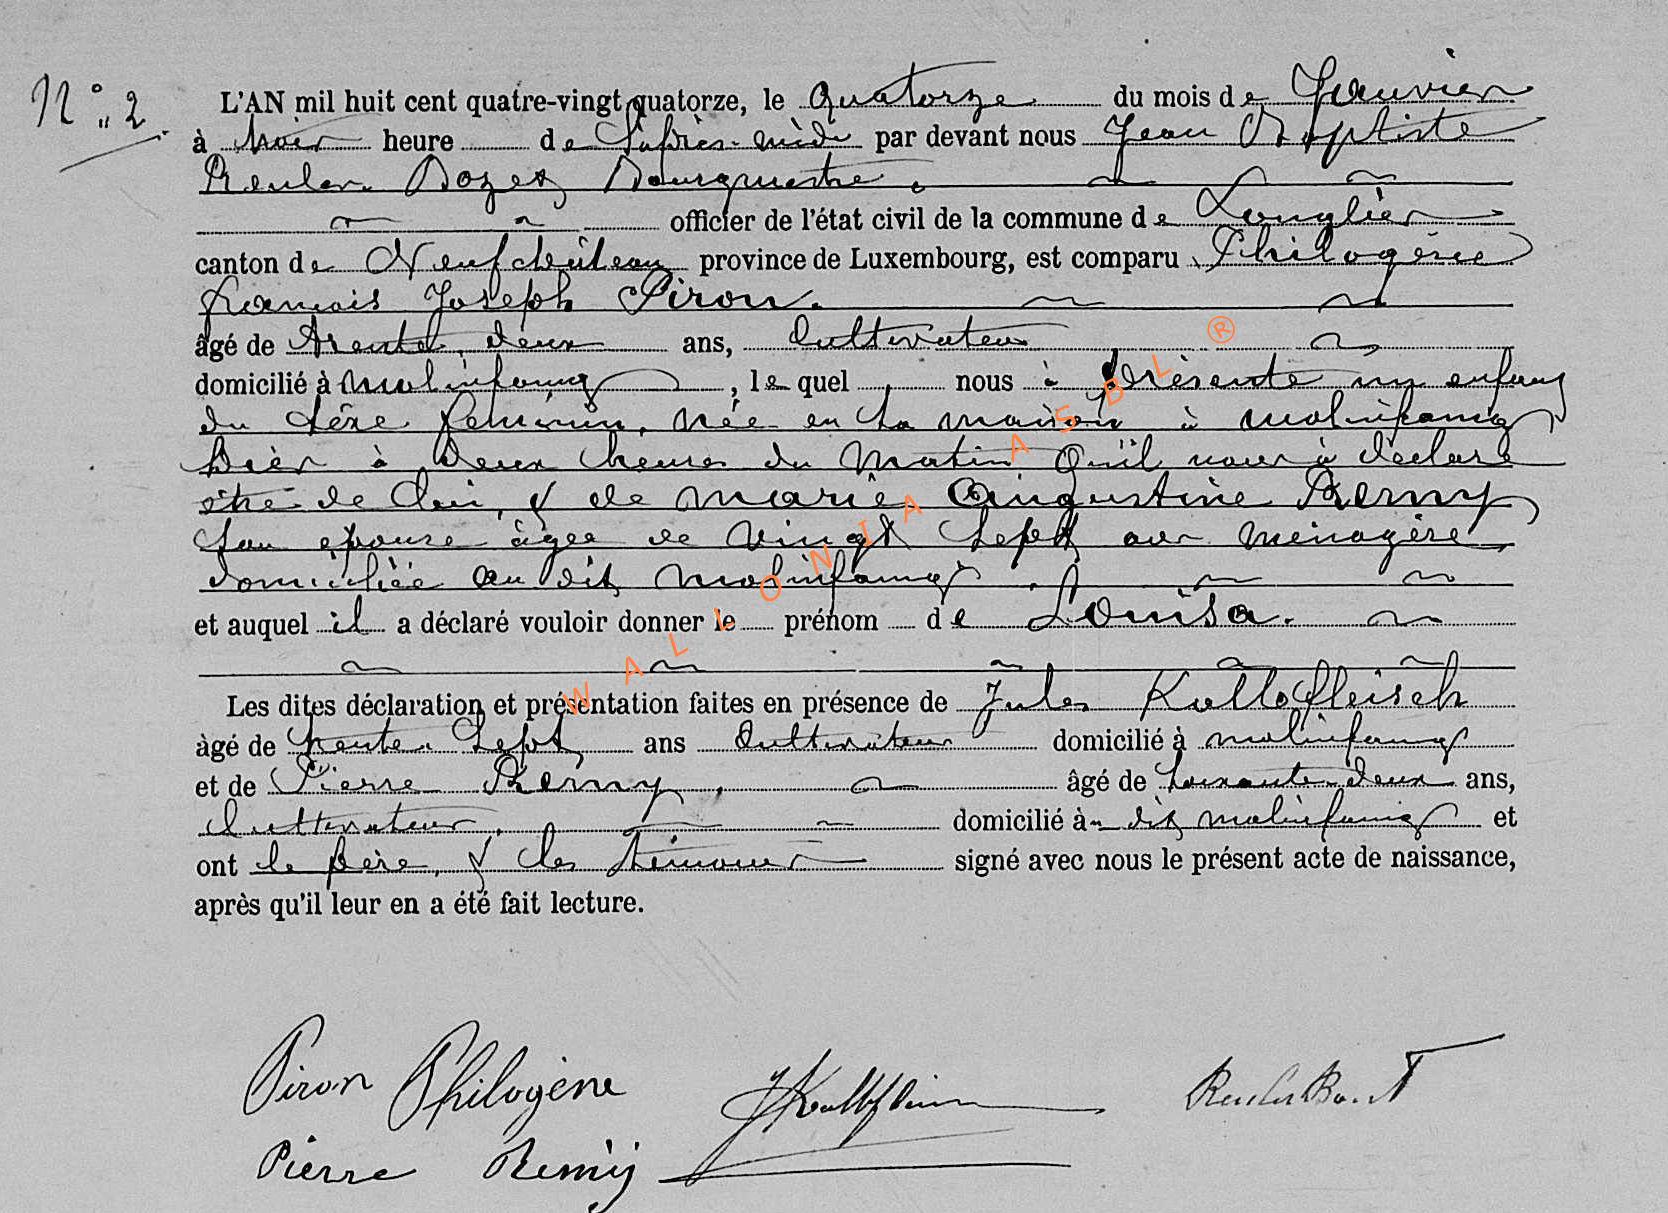 N° 2
L'AN mil huit cent quatre-vingt quatorze, le quatorze du mois de Janvier
à trois heure de l'après-midi par devant nous Jean Baptiste
Reuler Bozet Bourgmestre.
officier de l'état civil de la commune de Longlier
canton de Neufchâteau province de Luxembourg, est comparu Philogène
françois Joseph Piron.
âgé de trente deux ans, Cultivateur
domicilié à molinfaing, le quel nous à présenté un enfant
du sêxe feminin, née en sa maison à molinfaing
hièr à deux heures du matin Qu'il nous à déclaré
être de lui, & de marie Augustine Remy
son épouse âgée de vingt sept ans ménagère,
domiciliée au dit molinfaing.
et auquel il a déclaré vouloir donner le prénom de Louisa.
Les dites déclaration et présentation faites en présence de Jules Kalbfleisch
àgé de trente sept ans Cultivateur domicilié à molinfaing
et de Pierre Remy, âgé de soixante deux ans,
Cultivateur, domicilié à dit molinfaing et
ont le père, & les témoins signé avec nous le présent acte de naissance,
après qu'il leur en a été fait lecture.
Piron Philogène
Pierre Remy
WALLONIA ASBL ®